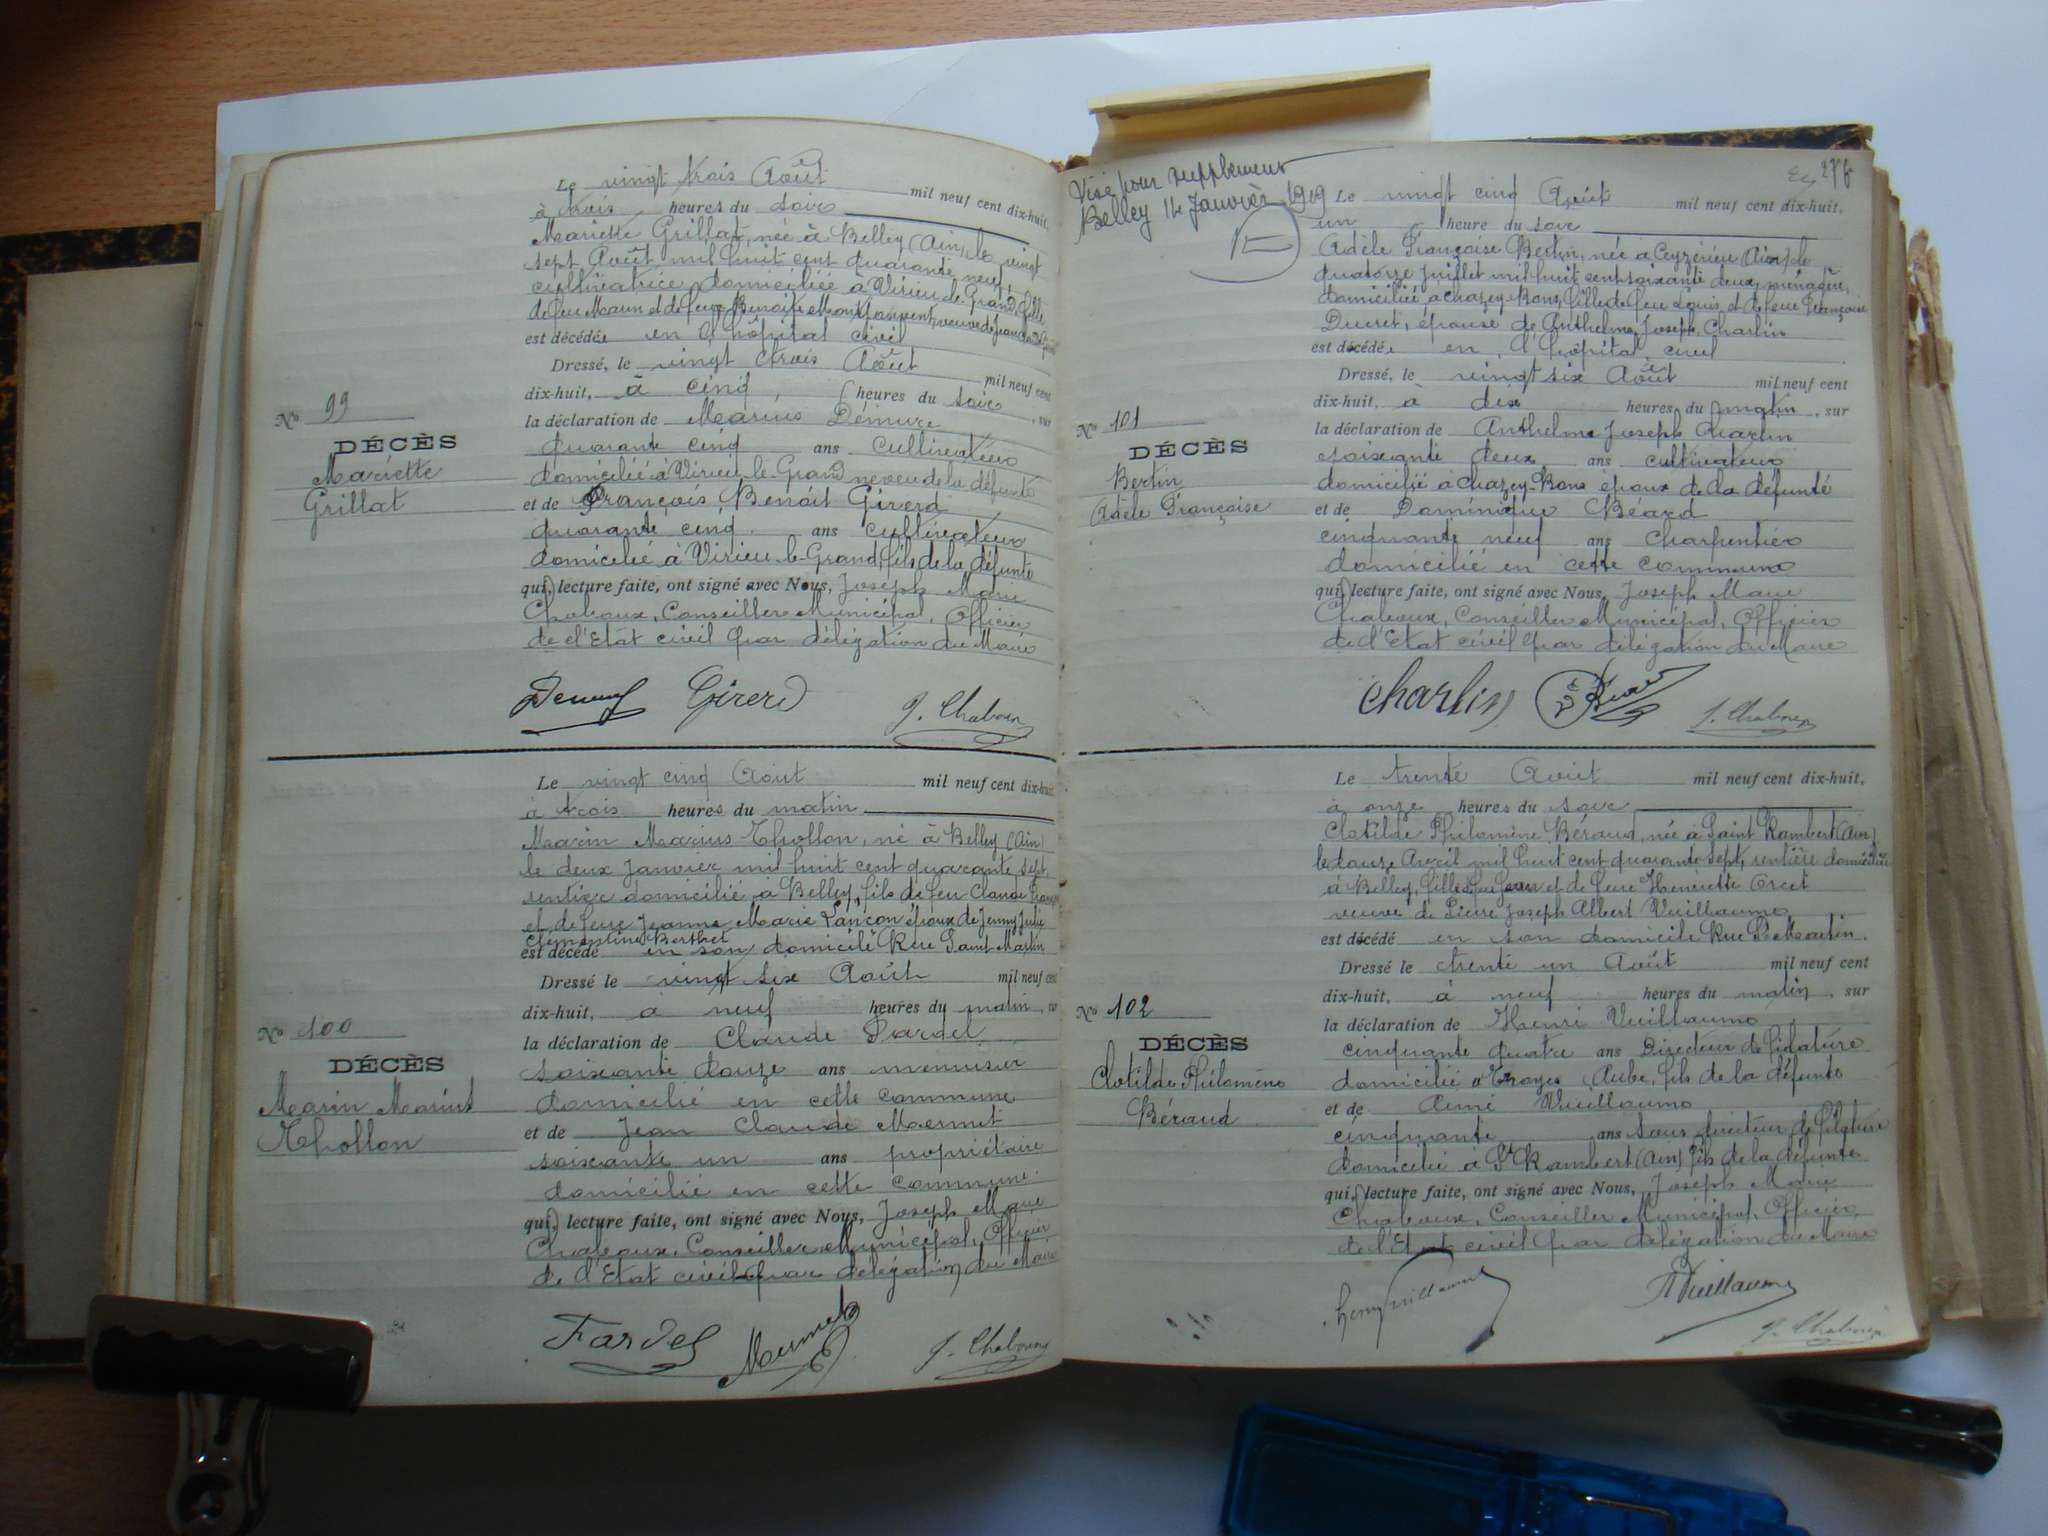 Le vingt trois Août mil neuf cent dix-huit,
à trois heures du soir
Mariette Grillat, née à Belley (Ain) le vingt
sept Août mil huit cent quarante neuf,
cultivatrice domiciliée à Virieu-le-Grand, fille
de feu Marin et de feue Benoîte veuve de
est décédée en l'hôpital civil
Dressé, le vingt trois Août mil neuf cent
dix-huit, à cinq heures du soir
la déclaration de Marius , sur
quarante cinq ans cultivateur
domicilié à Virieu-le-Grand neveu de la défunte
et de François Benoît Girerd
quarante cinq ans cultivateur
domicilié à Virieu-le-Grand, fils de la défunte
qui, lecture faite, ont signé avec Nous, Joseph Marie
Chaboux, Conseiller Municipal, Officier
de l'Etat civil par délégation du Maire
Girerd J. Chaboux
No 99
DÉCÈS
Mariette
Grillat
Le vingt cinq Août mil neuf cent dix-huit,
à trois heures du matin
Marin Marius Thollon, né à Belley (Ain)
le deux Janvier mil huit cent quarante sept,
rentier domicilié à Belley, fils de feu Claude
et de feue Jeanne Marie Lançon époux de Jenny Julie
Clémentine Berthet
est décédé en son domicile Rue Saint Martin
Dressé le vingt six Août mil neuf cent
dix-huit, à neuf heures du matin, sur
la déclaration de Claude Fardel
soixante douze ans menuisier
domicilié en cette commune
et de Jean Claude Mermet
soixante un ans propriétaire
domicilié en cette commune
qui, lecture faite, ont signé avec Nous, Joseph Marie
Chaboux, Conseiller Municipal, Officier
de l'Etat civil par délégation du Maire
Fardel Mermet J. Chaboux
No 100
DÉCÈS
Marin Marius
Thollon
Visé pour supplément
Belley 14 Janvier 1919
276
Le vingt cinq Août mil neuf cent dix-huit,
un heure du soir
Adèle Françoise Bertin, née à Ceyzérieu (Ain) le
quatorze Juillet mil huit cent soixante deux, ménagère,
domiciliée à Chazey-Bons, fille de feu Louis et de feue Françoise
Ducret, épouse de Anthelme Joseph Charlin
est décédée en l'hôpital civil
Dressé, le vingt six Août mil neuf cent
dix-huit, à dix heures du matin, sur
la déclaration de Anthelme Joseph Charlin
soixante deux ans cultivateur
domicilié à Chazey-Bons époux de la défunte
et de Dominique Béard
cinquante neuf ans charpentier
domicilié en cette commune
qui, lecture faite, ont signé avec Nous, Joseph Marie
Chaboux, Conseiller Municipal, Officier
de l'Etat civil par délégation du Maire
Charlin J. Chaboux
No 101
DÉCÈS
Bertin
Adèle Françoise
Le trente Août mil neuf cent dix-huit,
à onze heures du soir
Clotilde Philomène Béraud, née à Saint Rambert (Ain)
le douze Avril mil huit cent quarante sept, rentière domiciliée
à Belley, fille de feu Jean et de feue Henriette Orcet
veuve de Pierre Joseph Albert Vuillaume
est décédé en son domicile Rue St Martin.
Dressé le trente un Août mil neuf cent
dix-huit, à neuf heures du matin, sur
la déclaration de Henri Vuillaume
cinquante quatre ans Directeur de filature
domicilié à Troyes Aube, fils de la défunte
et de Aimé Vuillaume
cinquante ans sous directeur de filature
domicilié à St Rambert (Ain) fils de la défunte
qui, lecture faite, ont signé avec Nous, Joseph Marie
Chaboux, Conseiller Municipal, Officier
de l'Etat civil par délégation du Maire
Henry Vuillaume A Vuillaume
J. Chaboux
No 102
DÉCÈS
Clotilde Philomène
Béraud